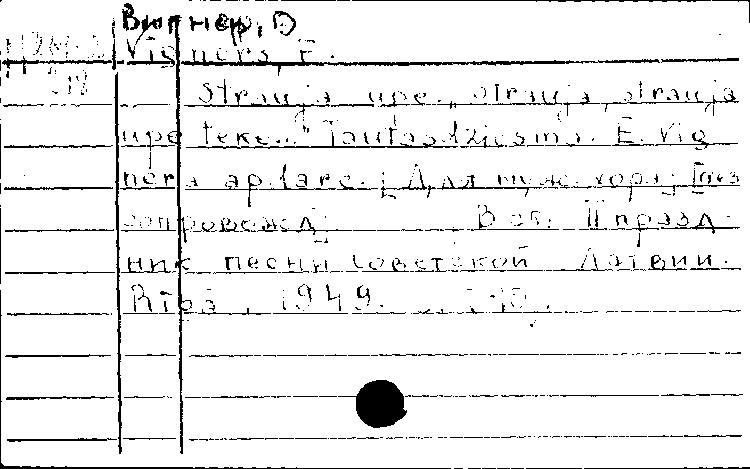 Вигнер, Э
Vigners, E.
Strauja upe „strauja, strauja
upe tekē..." Tautasdziesma. E. Vig
nera apdare. [Для муж. хора; без
сопровожд]. В сб: II празд-
ник песни Советской Латвии.
Rīgā, 1949.